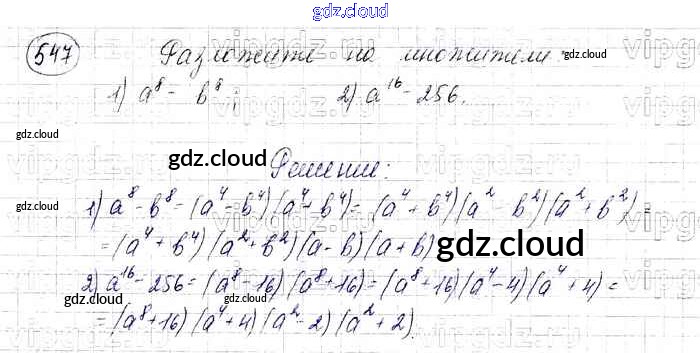 gdz.cloud
547 Разложите на множители: gdz.cloud
1) a⁸ - b⁸; 2) a¹⁶ - 256.
gdz.cloud
gdz.cloud Решение:
gdz.cloud
1) a⁸ - b⁸ = (a⁴ - b⁴)(a⁴ + b⁴) = (a⁴ + b⁴)(a² - b²)(a² + b²) =
= (a⁴ + b⁴)(a² + b²)(a - b)(a + b) gdz.cloud
2) a¹⁶ - 256 = (a⁸ - 16)(a⁸ + 16) = (a⁸ + 16)(a⁴ - 4)(a⁴ + 4) =
gdz.cloud gdz.cloud
= (a⁸ + 16)(a⁴ + 4)(a² - 2)(a² + 2).